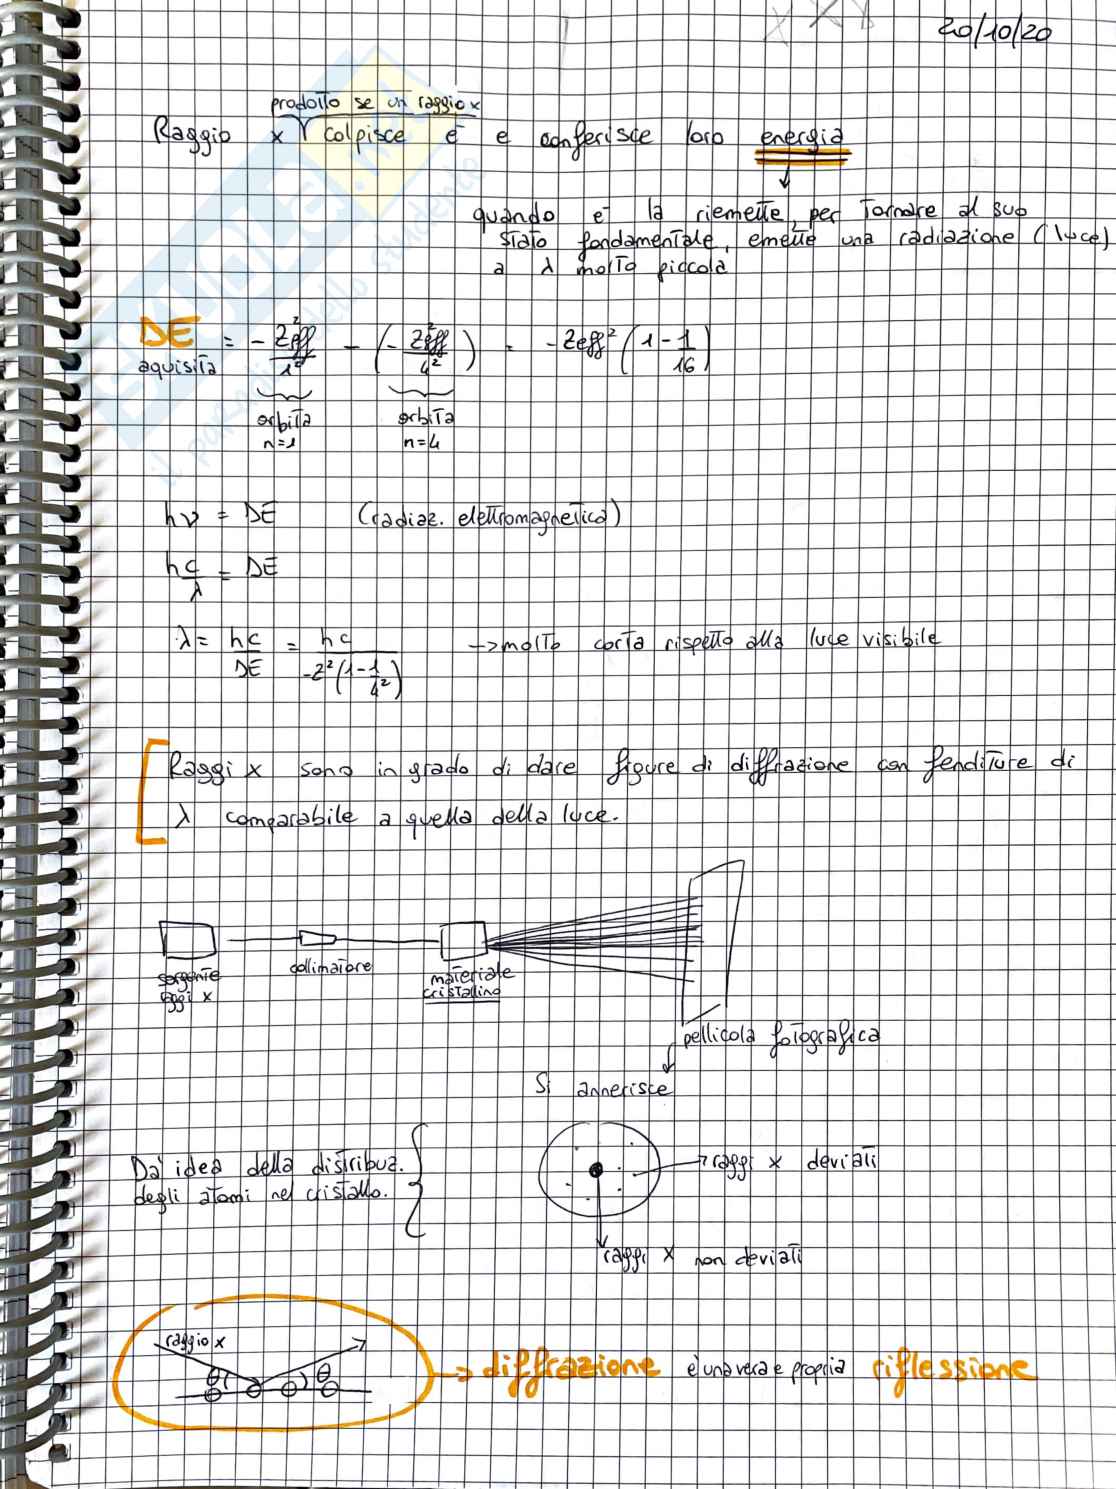 20/10/20
prodotto se un raggio x
Raggio x colpisce e⁻ e conferisce loro energia
quando e⁻ la riemette, per tornare al suo
stato fondamentale, emette una radiazione (luce)
a λ molto piccola
DE = - Zeff²/1² - (- Zeff²/4²) = -Zeff² (1 - 1/16)
aquisita
orbita orbita
n=1 n=4
hν = DE (radiaz. elettromagnetica)
hc/λ = DE
λ = hc/DE = hc/-Z²(1-1/4²) → molto corta rispetto alla luce visibile
Raggi x sono in grado di dare figure di diffrazione con fenditure di
λ comparabile a quella della luce.
sorgente
raggi x
collimatore
materiale
cristallino
pellicola fotografica
Si annerisce
Da' idea della distribuz.
degli atomi nel cristallo.
raggi x deviati
raggi x non deviati
raggio x
θ θ
→ diffrazione è una vera e propria riflessione
SKUOLA.net
il paradiso dello studente